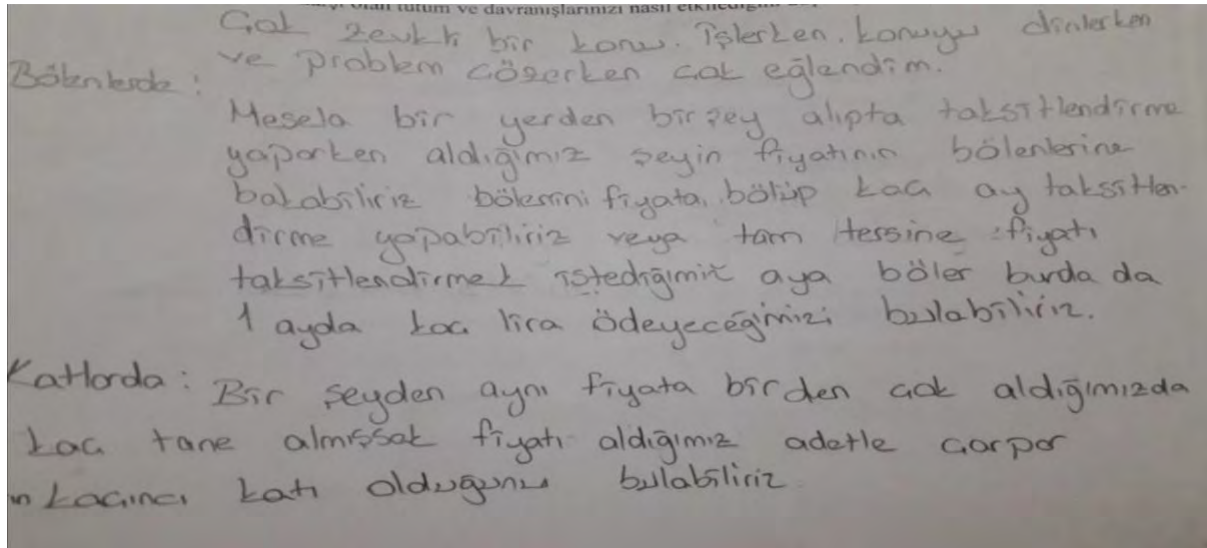 olan tutum ve davranışlarınızı nasıl etkilediğini
Çok zevkli bir konu. İşlerken, konuyu dinlerken
ve problem çözerken çok eğlendim.
Bölenlerde :
Mesela bir yerden birşey alıpta taksitlendirme
yaparken aldığımız şeyin fiyatının bölenlerine
bakabiliriz bölenini fiyata bölüp kaç ay taksitlen-
dirme yapabiliriz veya tam tersine fiyatı
taksitlendirmek istediğimiz aya böler burda da
1 ayda kaç lira ödeyeceğimizi bulabiliriz.
Katlarda : Bir şeyden aynı fiyata birden çok aldığımızda
kaç tane almışsak fiyatı aldığımız adetle çarpar
kaçıncı katı olduğunu bulabiliriz